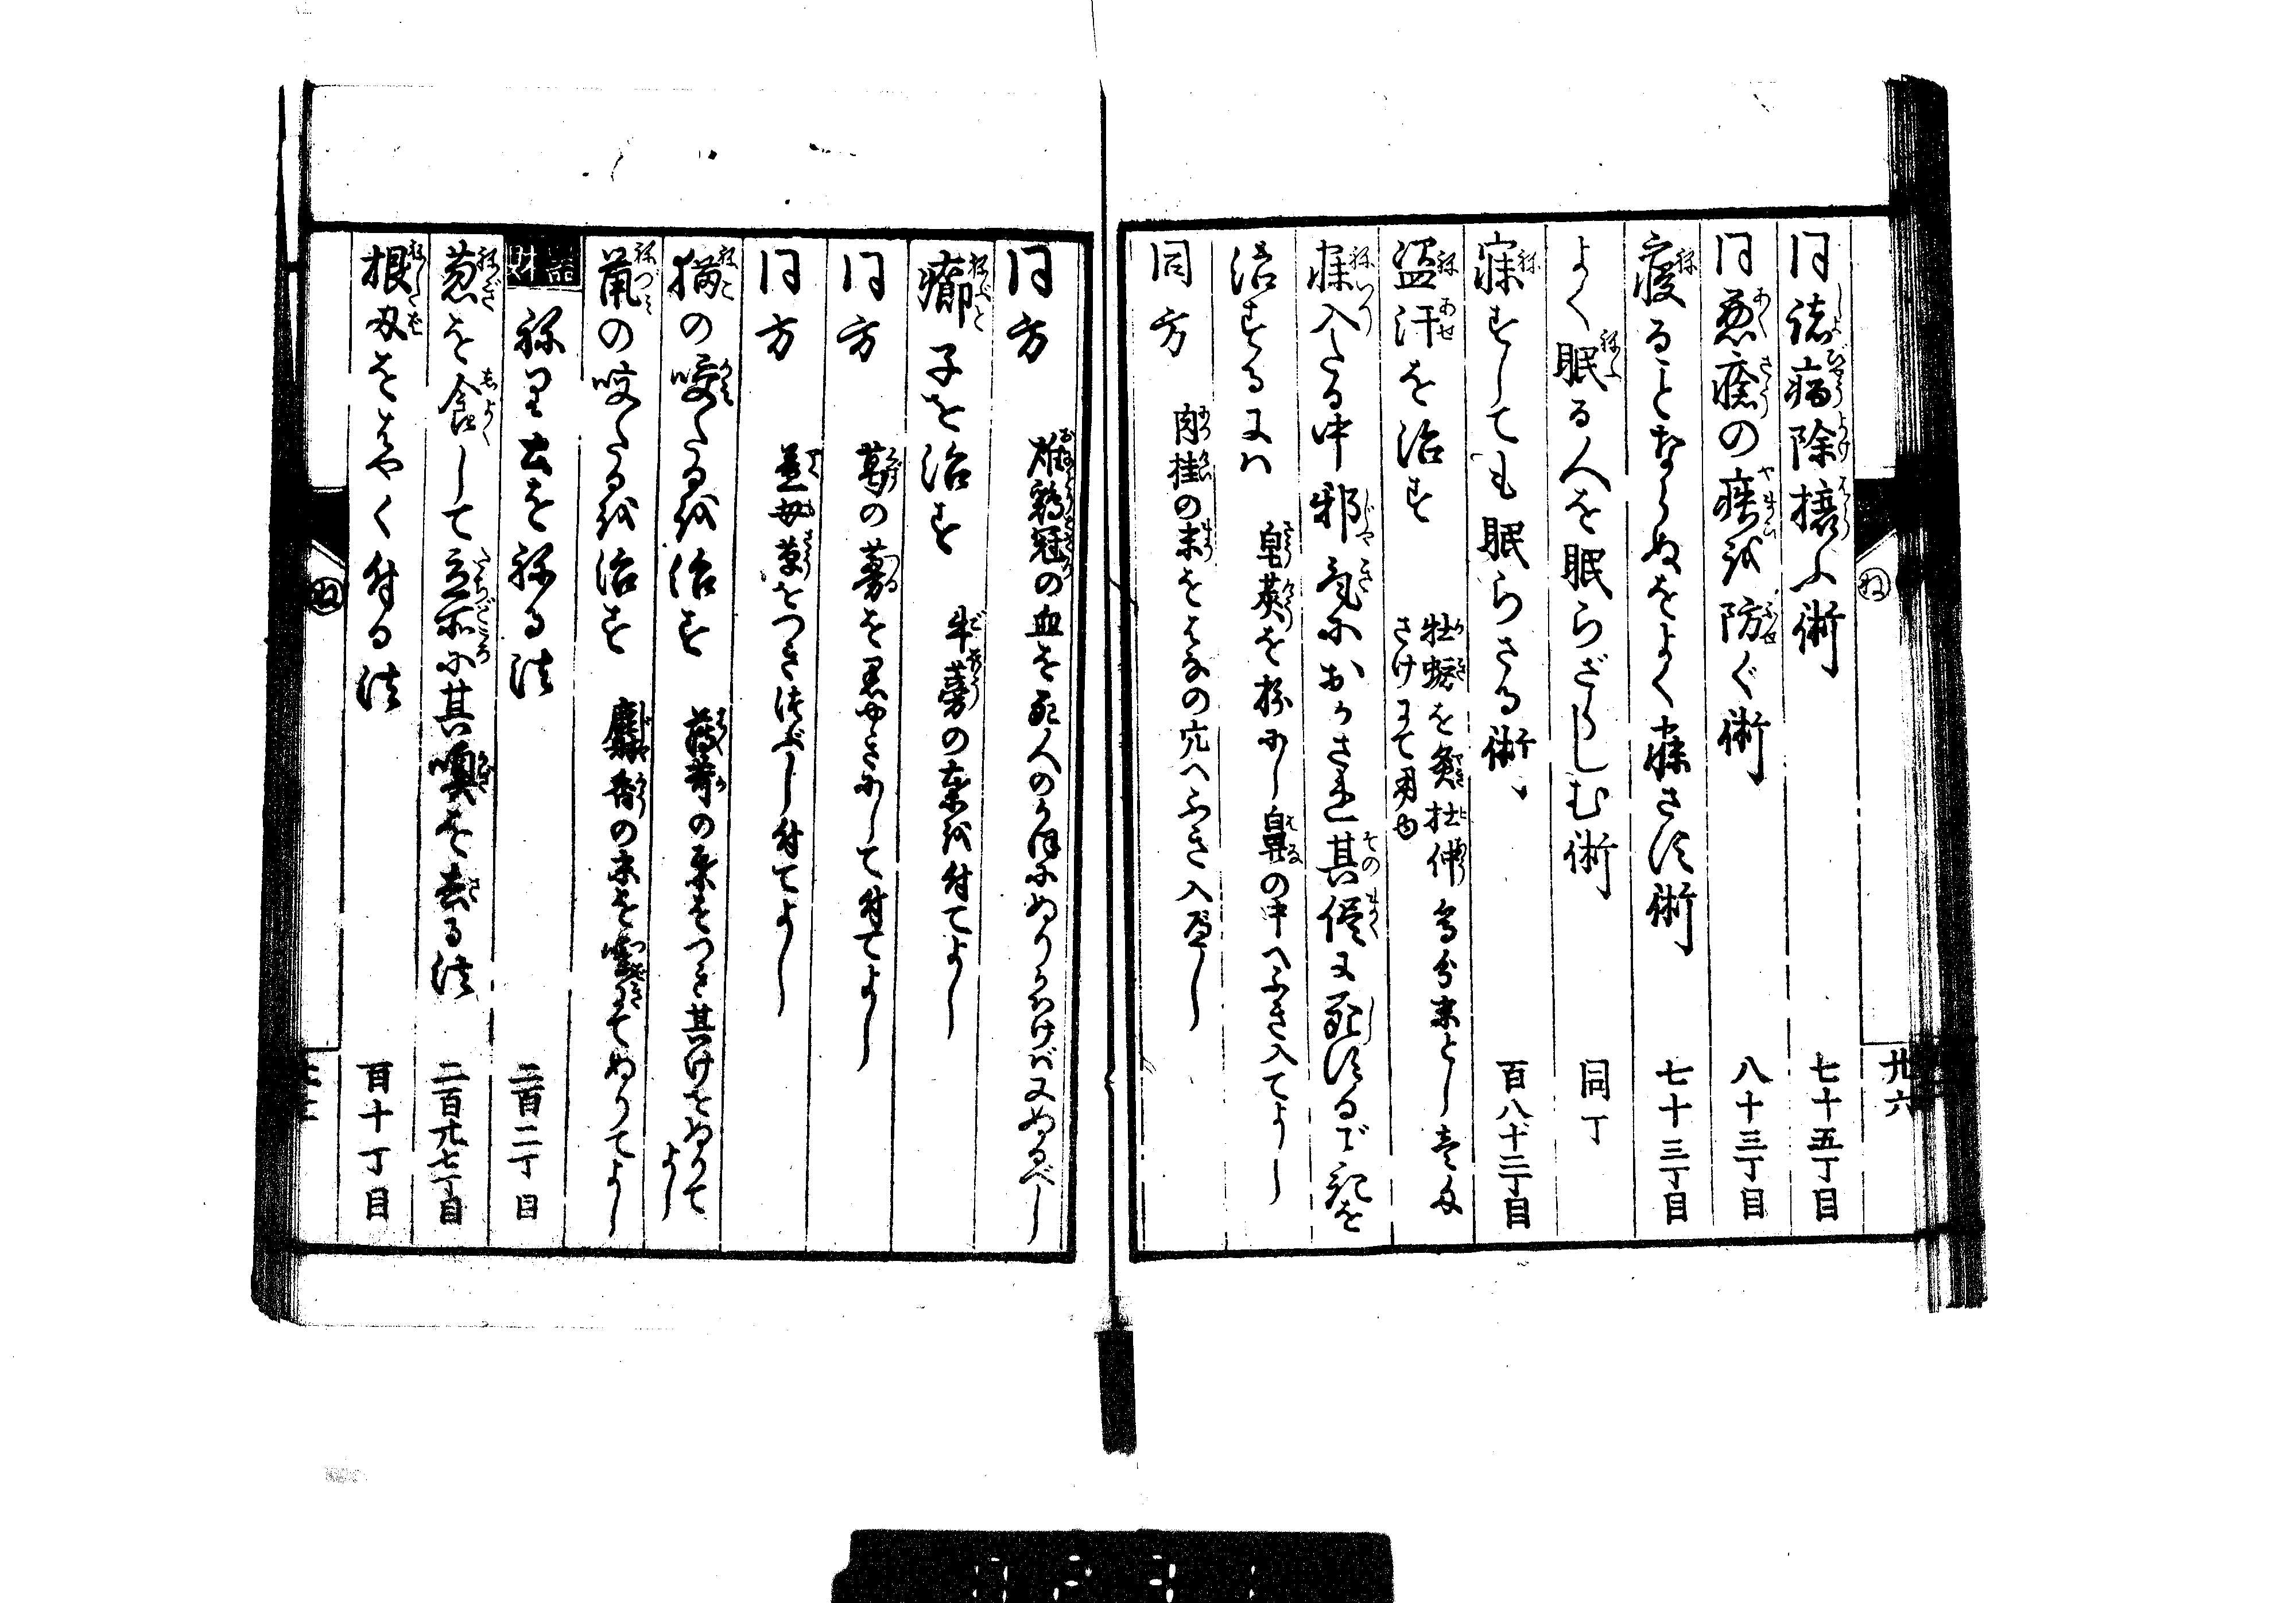 ね
廿六
同諸病除攘ふ術 七十五丁目
同悪瘡の病を防ぐ術 八十三丁目
寝ることならぬをよく寐さす術 七十三丁目
よく眠る人を眠らざらしむ術 同丁
寐ずしても眠らさる術 百八十二丁目
盗汗を治す 牡蛎を炙杜仲等分末とし壱匁
さけにて用ゆ
寐入たる中邪気におかされ其儘に死するを
治するには 皂莢を粉にし鼻の中へふき入てよし
同方 肉桂の末をはなの穴へふき入べし
同方 雄鶏冠の血を死人のかほにぬりかはけば又ぬるべし
癤子を治す 牛蒡の葉を付てよし
同方 葛の蔓を黒やきにして付てよし
同方 益母草をつきつぶし付てよし
猫の咬たるを治す 薄荷の葉をつき其汁をぬりて
よし
鼠の咬たるを治す 麝香の末を唾にてぬりてよし
財 ねり土をねる法 二百二丁目
葱を食して立所に其嗅を去る法 二百廿七丁目
根刄をはやく付る法 百十丁目
ね